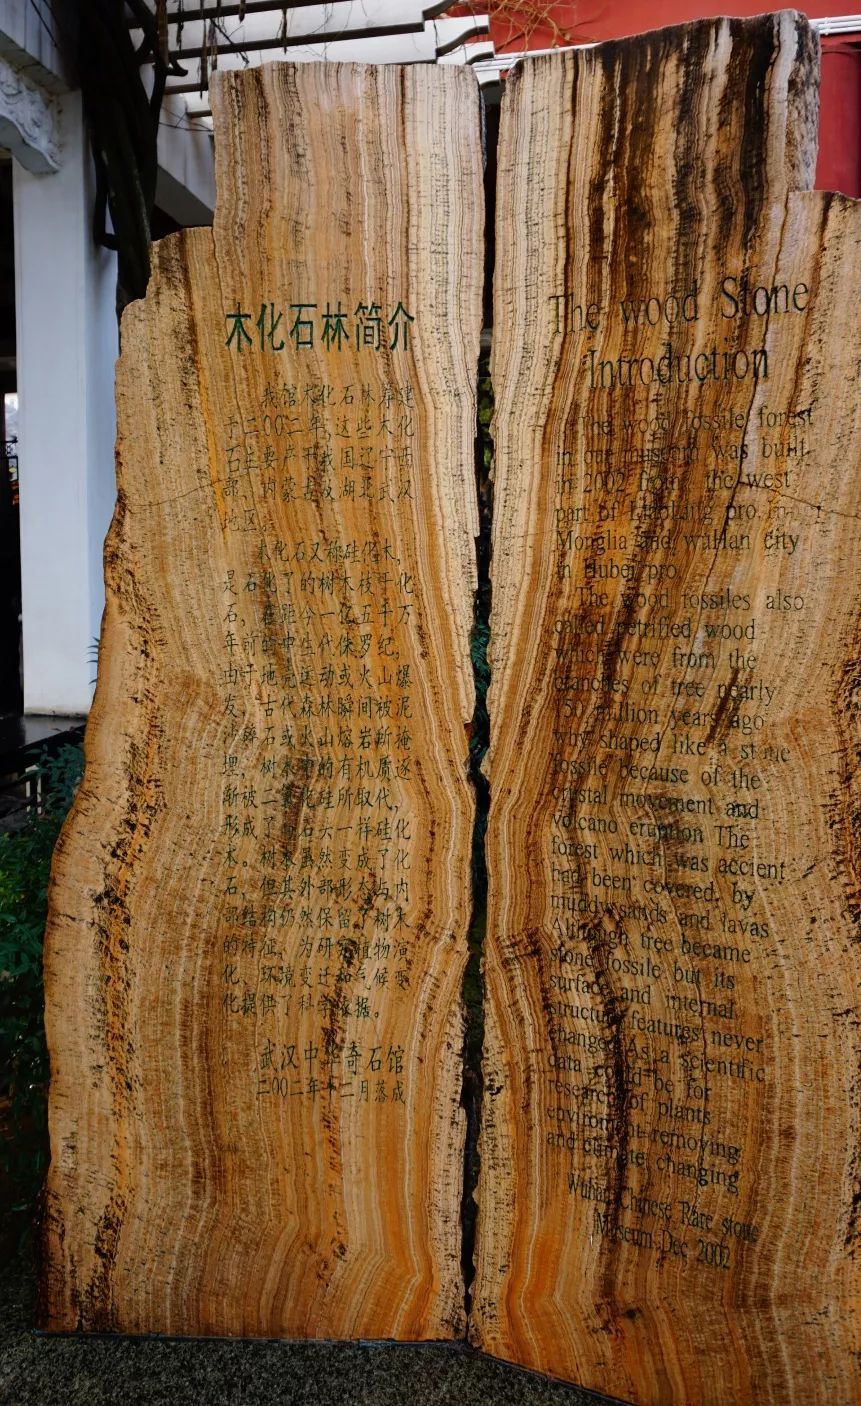 木化石林简介
我馆木化石林筹建
于二〇〇二年,这些木化
石主要产于我国辽宁西
部、内蒙古及湖北武汉
地区。
木化石又称硅化木,
是石化了的树木枝干化
石,在距今一亿五千万
年前的中生代侏罗纪,
由于地壳运动或火山爆
发,古代森林瞬间被泥
沙碎石或火山熔岩所掩
埋,树木中的有机质逐
渐被二氧化硅所取代,
形成了与石头一样硅化
木。树木虽然变成了化
石,但其外部形态与内
部结构仍然保留了树木
的特征,为研究植物演
化、环境变迁和气候变
化提供了科学依据。
武汉中华奇石馆
二〇〇二年十二月落成
The wood Stone
Introduction
The wood fossile forest
in our museum was built
in 2002 from the west
part of pro.In-
Monglia and wuHan city
in Hubei pro
The wood fossiles also
called petrified wood
which were from the
branches of tree nearly
150 million years ago
why shaped like a stone
fossile because of the
crystal movement and
volcano eruption The
forest which was accient
had been covered by
muddy sands and lavas
Although tree became
stone fossile but its
surface and internal
structure features never
change As a scientific
data could be for
research of plants
enviroment removing
and climate changing
Wuhan Chinese Rare stone
Museum Dec 2002